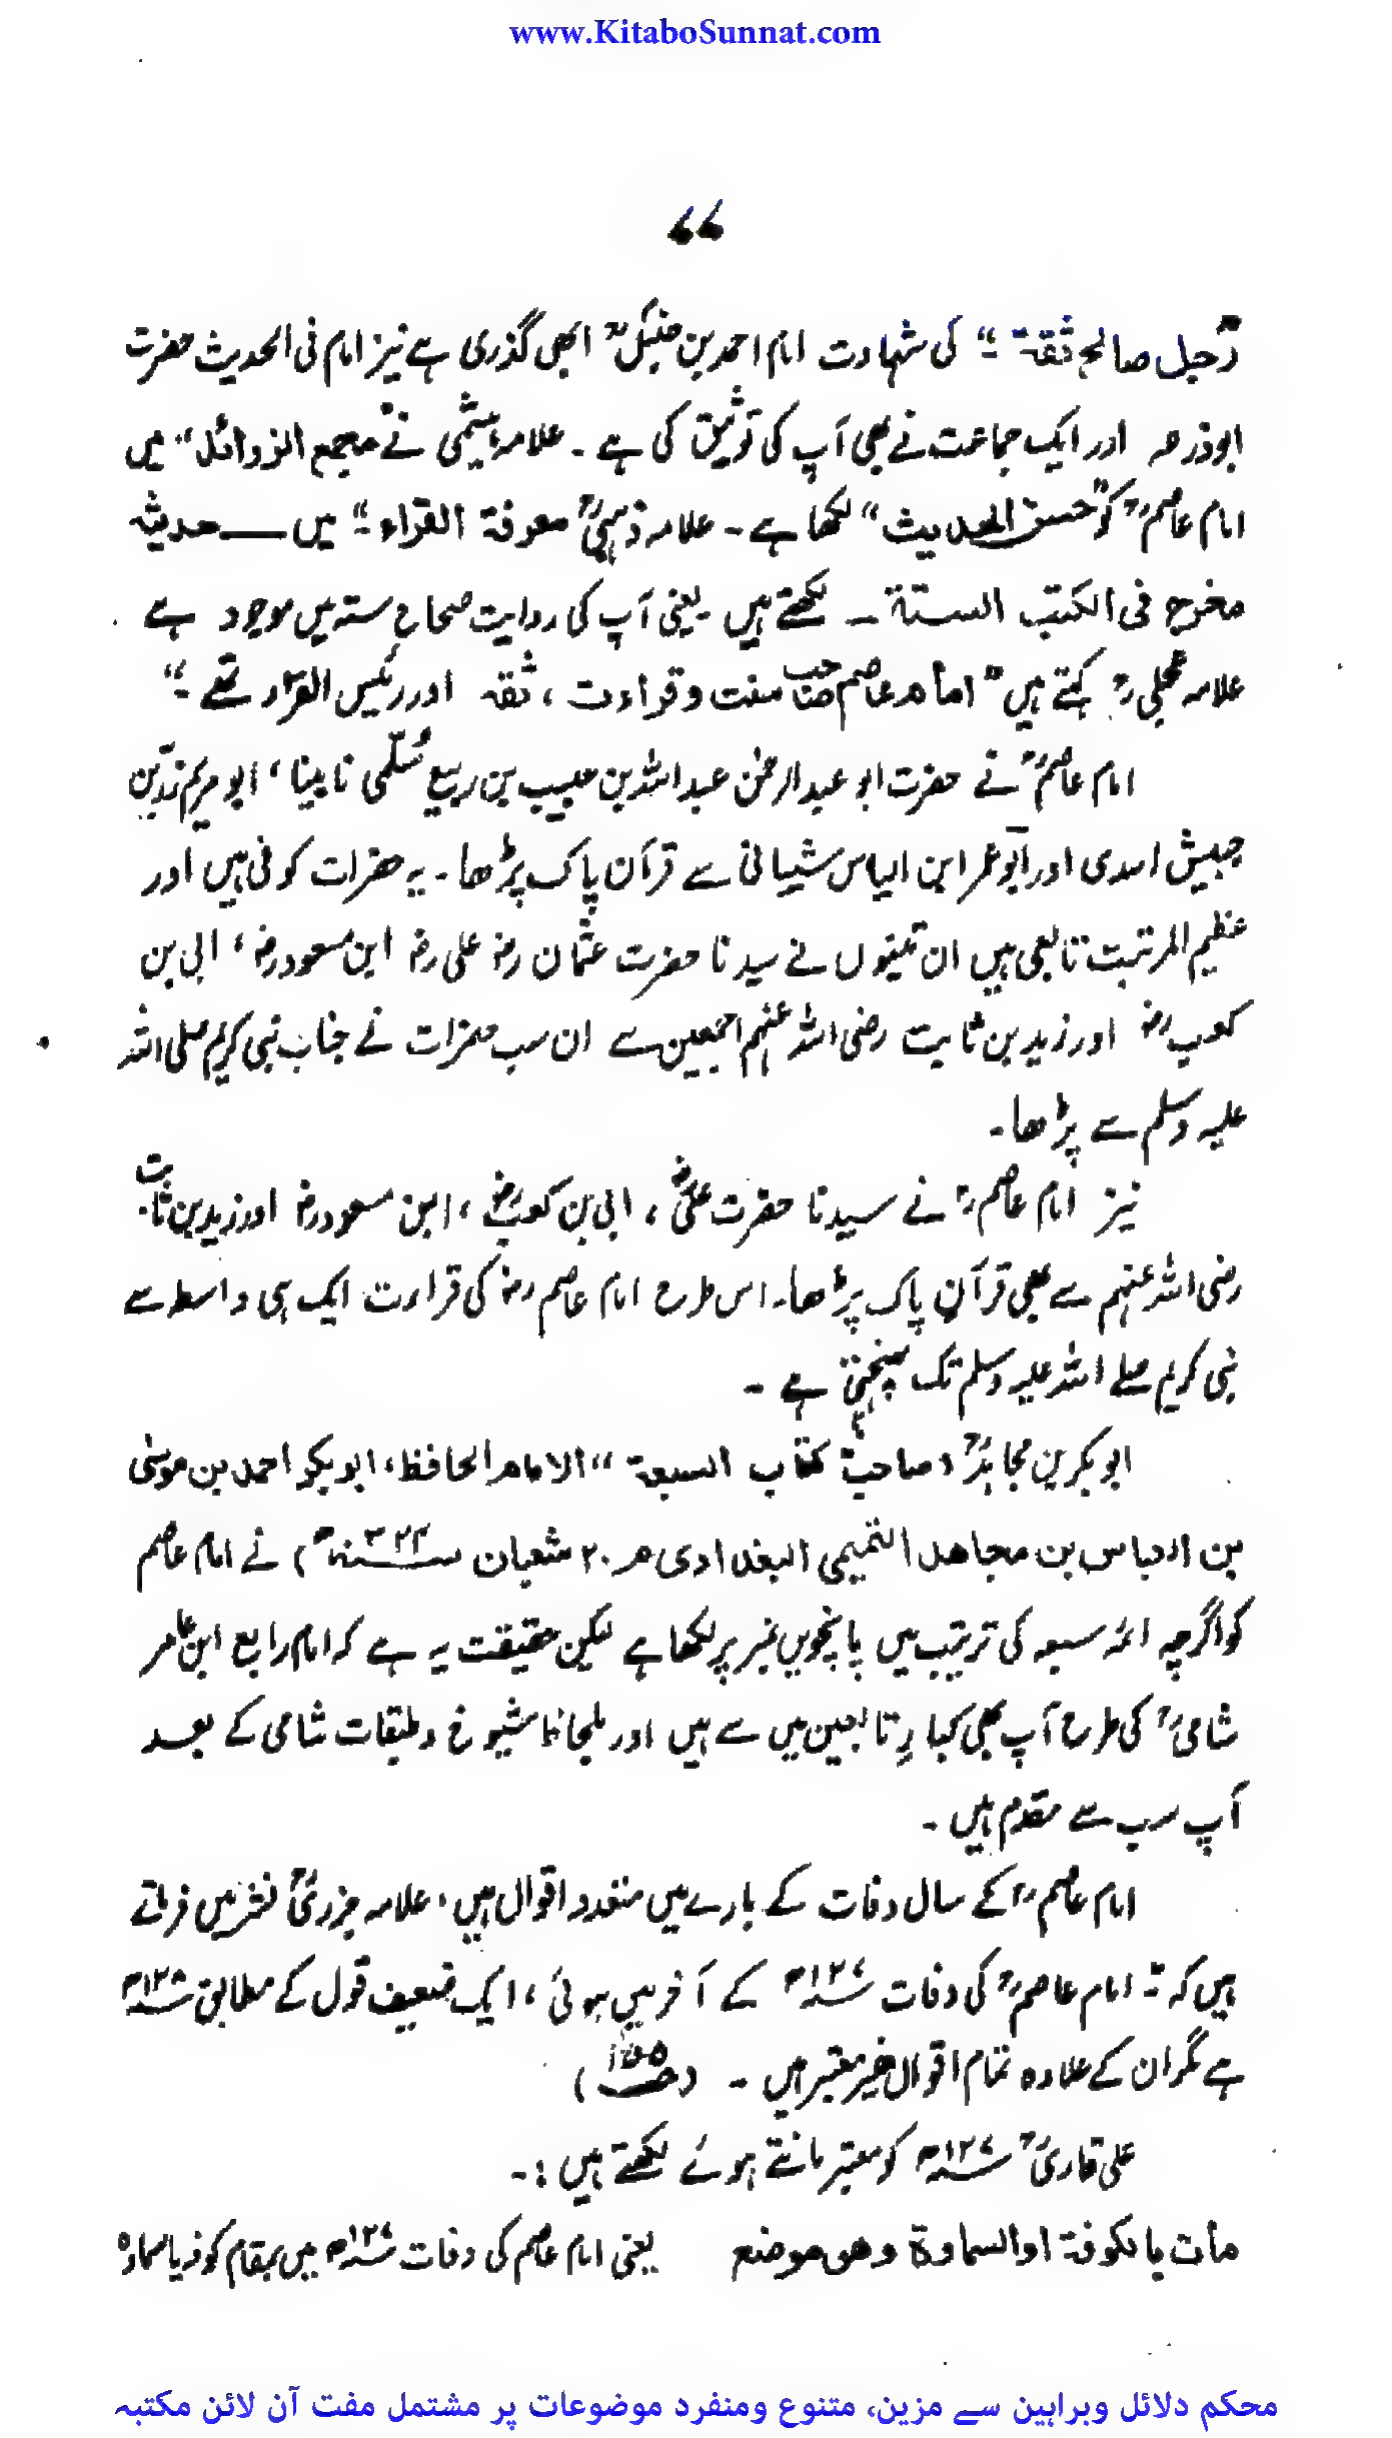 www.KitaboSunnat.com
۶۶
"رجل صالح ثقۃ ۔" کی شہادت امام احمد بن حنبلؒ ابھی گذری ہے نیز امام فی الحدیث حضرت
ابوذرعہ اور ایک جماعت نے بھی آپ کی توثیق کی ہے ۔ علامہ ہیثمی نے "مجمع الزوائد" میں
امام عاصمؒ کو "حسن الحدیث" لکھا ہے ۔ علامہ ذہبیؒ معرفۃ القراء ۔" میں ــــ حدیثہ
مخرج فی الکتب الستۃ ــ لکھتے ہیں ۔یعنی آپ کی روایت صحاح ستہ میں موجود ہے
علامہ عجلیؒ کہتے ہیں "امام عاصم صاحب سنت و قراءت ، ثقہ اور رئیس القراء تھے ۔"
امام عاصمؒ نے حضرت ابو عبدالرحمٰن عبداللہ بن حبیب بن ربیع سُلَّمی نابینا ، ابو مریم زرّبن
حبیش اسدی اور ابو عمر ابن الیاس شیبانی سے قرآن پاک پڑھا ۔ یہ حضرات کوفی ہیں اور
عظیم المرتبت تابعی ہیں ان تینوں نے سیدنا حضرت عثمان رضؓ علی رضؓ ابن مسعود رضؓ ، ابی بن
کعب رضؓ اور زید بن ثابت رضی اللہ عنہم اجمعین سے ان سب حضرات نے جناب نبی کریم صلی اللہ
علیہ وسلم سے پڑھا ۔
نیز امام عاصمؒ نے سیدنا حضرت علیؓ ، ابی بن کعب رضؓ ، ابن مسعود رضؓ اور زید بن ثابت
رضی اللہ عنہم سے بھی قرآن پاک پڑھا ۔ اس طرح امام عاصم رضؓ کی قراءت ایک ہی واسطہ سے
نبی کریم صلے اللہ علیہ وسلم تک پہنچتی ہے ۔
ابوبکر بن مجاہدؒ (صاحب کتاب السبعۃ "الامام الحافظ، ابو بکر احمد بن موسیٰ
بن العباس بن مجاهد التمیمی البغدادی م ۲۰ شعبان ۳۲۴ سنہ") نے امام عاصم
کو اگرچہ ائمہ سبعہ کی ترتیب میں پانچویں نمبر پر لکھا ہے لیکن حقیقت یہ ہے کہ امام رابع ابن عامر
شامیؒ کی طرح آپ بھی کبارِ تابعین میں سے ہیں اور بلحاظ شیوخ و طبقات شامی کے بعد
آپ سب سے مقدم ہیں ۔
امام عاصمؒ کے سال وفات کے بارے میں متعدد اقوال ہیں ، علامہ جزریؒ نشر میں فرماتے
ہیں کہ :۔ امام عاصمؒ کی وفات ۱۲۷ھ کے آخر میں ہوئی ، ایک ضعیف قول کے مطابق ۱۲۸ھ
ہے مگر ان کے علاوہ تمام اقوال غیر معتبر ہیں ۔ (ص۱۵۵)
علی قاریؒ ۱۲۷ھ کو معتبر مانتے ہوئے لکھتے ہیں :۔
مات بالکوفۃ اوالسماوۃ وھی موضع یعنی امام عاصم کی وفات ۱۲۷ھ میں بمقام کوفہ یا سماوہ
محکم دلائل وبراہین سے مزین، متنوع ومنفرد موضوعات پر مشتمل مفت آن لائن مکتبہ